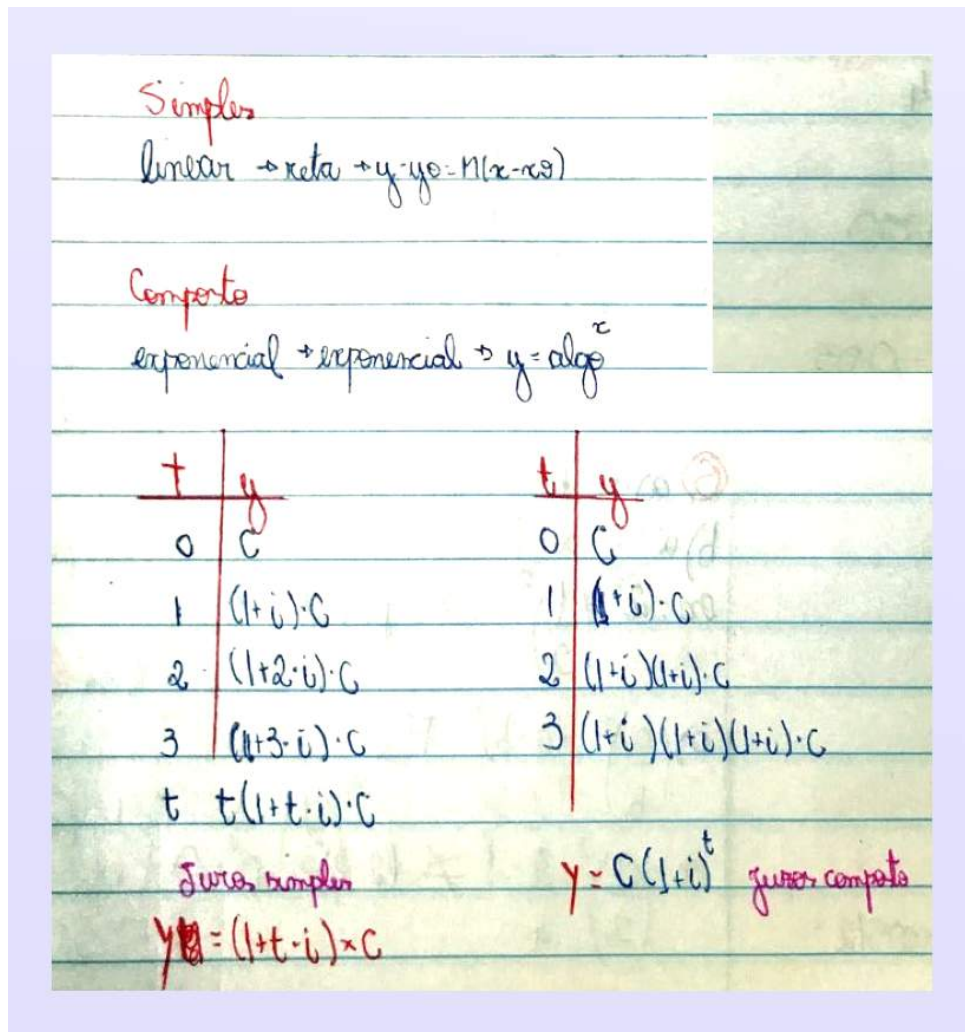 Simples
linear → reta → y-yo=M(x-xo)
Composto
exponencial → exponencial → y = algo^x
t | y
0 | C
1 | (1+i)·C
2 | (1+2·i)·C
3 | (1+3·i)·C
t t(1+t·i)·C
Juros simples
y = (1+t·i)×C
t | y
0 | C
1 | (1+i)·C
2 | (1+i)(1+i)·C
3 | (1+i)(1+i)(1+i)·C
y = C(1+i)^t juros composto